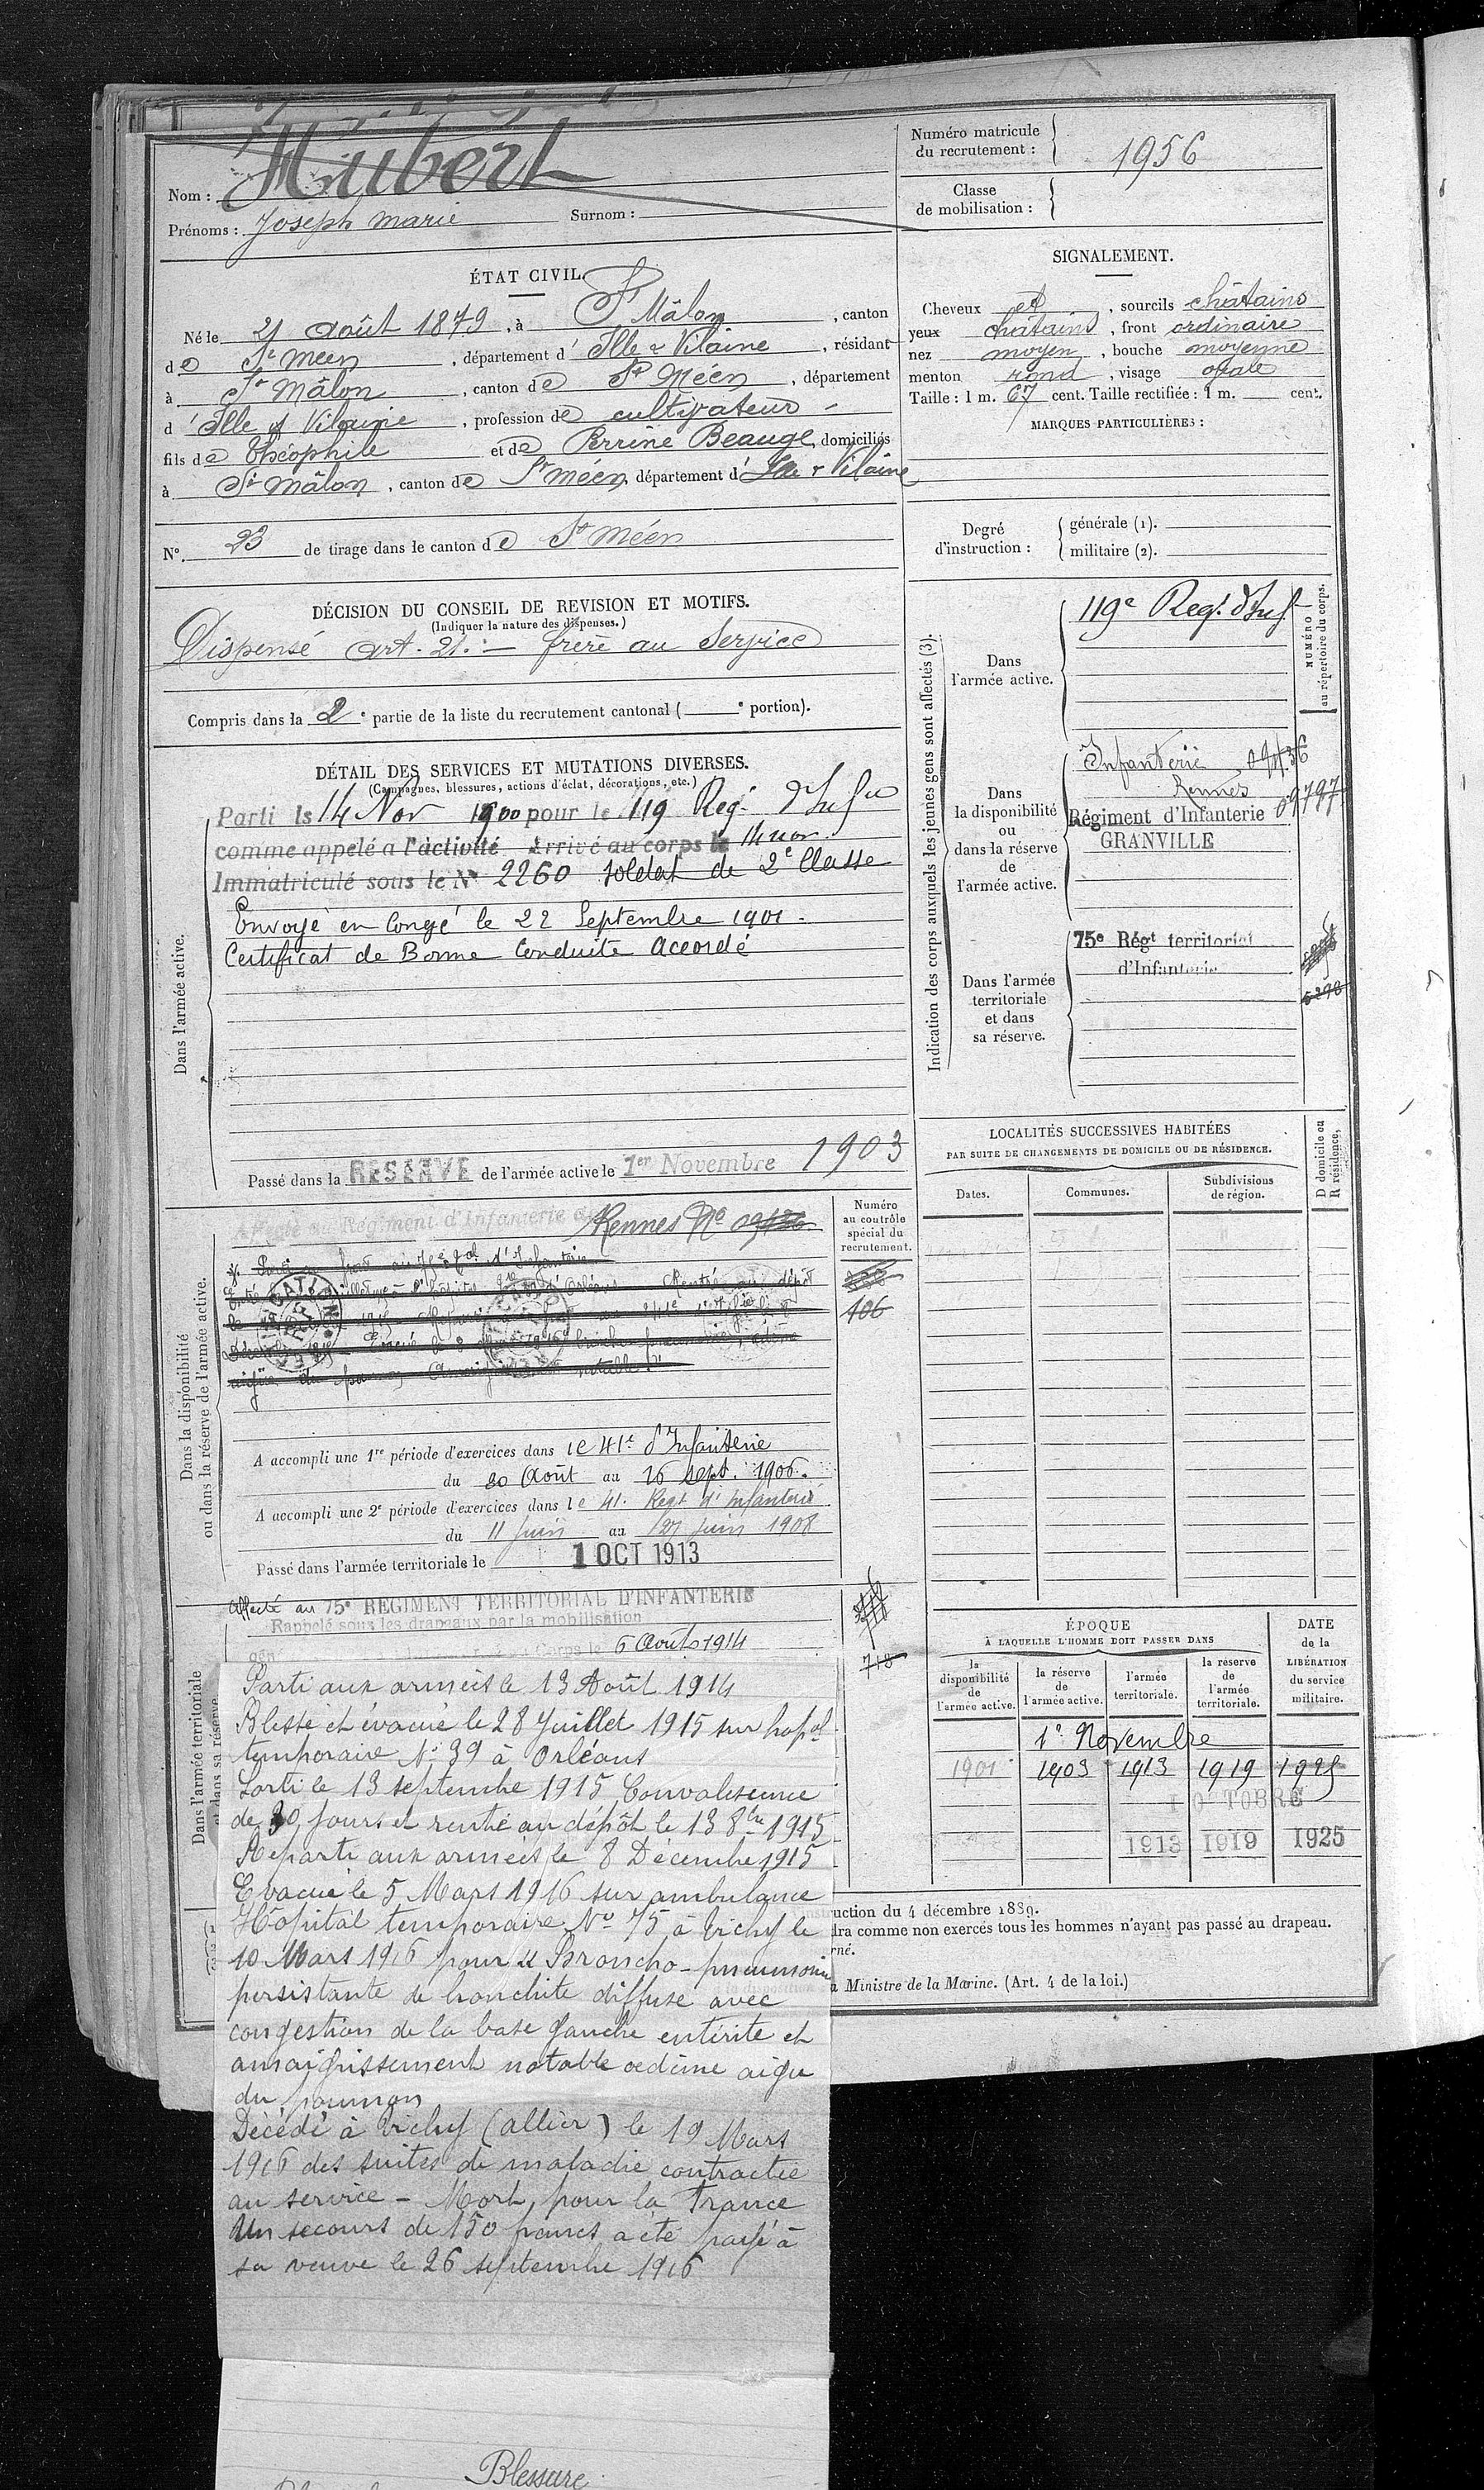 Nom : Hubert
Prénoms : Joseph Marie Surnom :
Numéro matricule du recrutement : 1956
Classe de mobilisation :
ÉTAT CIVIL.
Né le 21 août 1879, à St Mâlon, canton
de St Méen, département d' Ille & Vilaine, résidant
à St Mâlon, canton de St Méen, département
d' Ille & Vilaine, profession de cultivateur
fils de Théophile et de Perrine Beauge, domiciliés
à St Mâlon, canton de St Méen, département d' Ille & Vilaine
N° 23 de tirage dans le canton de St Méen
SIGNALEMENT.
Cheveux et, sourcils châtains
yeux châtains, front ordinaire
nez moyen, bouche moyenne
menton rond, visage ovale
Taille : 1 m. 67 cent. Taille rectifiée : 1 m. cent.
MARQUES PARTICULIÈRES :
Degré d'instruction :
générale (1).
militaire (2).
DÉCISION DU CONSEIL DE REVISION ET MOTIFS.
(Indiquer la nature des dispenses.)
Dispensé art. 21. — frère au Service
Compris dans la 2e partie de la liste du recrutement cantonal ( e portion).
DÉTAIL DES SERVICES ET MUTATIONS DIVERSES.
(Campagnes, blessures, actions d'éclat, décorations, etc.)
Dans l'armée active.
Parti le 14 Nov 1900 pour le 119 Reg. d'Infie
comme appelé a l'activité Arrivé au corps le 14 nov.
Immatriculé sous le No 2260 soldat de 2e Classe
Envoyé en Congé le 22 Septembre 1901.
Certificat de Bonne Conduite Accordé
Passé dans la RESERVE de l'armée active le 1er Novembre 1903
Indication des corps auxquels les jeunes gens sont affectés (3).
NUMÉRO au répertoire du corps.
Dans l'armée active.
119e Reg. d'Inf
Dans la disponibilité ou dans la réserve de l'armée active.
Infanterie
Rennes
Régiment d'Infanterie 09797
GRANVILLE
Dans l'armée territoriale et dans sa réserve.
75e Régt territorial
d'Infanterie
5298
LOCALITÉS SUCCESSIVES HABITÉES
PAR SUITE DE CHANGEMENTS DE DOMICILE OU DE RÉSIDENCE.
Dates. Communes. Subdivisions de région.
D domicile ou R résidence.
Dans la disponibilité ou dans la réserve de l'armée active.
Affecté au Régiment d'Infanterie de Rennes No
Numéro au contrôle spécial du recrutement.
106
A accompli une 1re période d'exercices dans le 41e d'Infanterie
du 20 Août au 16 sept. 1906.
A accompli une 2e période d'exercices dans le 41. Regt d'Infanterie
du 11 juin au 27 juin 1908
Passé dans l'armée territoriale le 1 OCT 1913
Dans l'armée territoriale et dans sa réserve
Affecté au 75e REGIMENT TERRITORIAL D'INFANTERIE
Rappelé sous les drapeaux par la mobilisation
Corps le 6 Août 1914
713
Parti aux armées le 13 Août 1914
Blessé et évacué le 28 Juillet 1915 sur hopal
temporaire No 39 à Orléans
Sorti le 13 septembre 1915 Convalescence
de 30 jours et rentré au dépôt le 13 8bre 1915
Reparti aux armées le 8 Décembre 1915
Evacué le 5 Mars 1916 sur ambulance
Hôpital temporaire No 75 à Vichy le
10 Mars 1916 pour « Broncho-pneumonie
persistante de bronchite diffuse avec
congestion de la base gauche entérite et
amaigrissement notable oedème aigu
du poumon
Décédé à Vichy (allier) le 19 Mars
1916 des suites de maladie contractée
au service - Mort pour la France
Un secours de 150 francs a été payé à
sa veuve le 26 septembre 1916
ÉPOQUE
À LAQUELLE L'HOMME DOIT PASSER DANS
la disponibilité de l'armée active.
la réserve de l'armée active.
l'armée territoriale.
la réserve de l'armée territoriale.
DATE de la LIBÉRATION du service militaire.
1er Novembre
1901 1903 1913 1919 1925
1 OCTOBRE
1913 1919 1925
ruction du 4 décembre 1889.
dra comme non exercés tous les hommes n'ayant pas passé au drapeau.
rné.
a Ministre de la Marine. (Art. 4 de la loi.)
Blessure